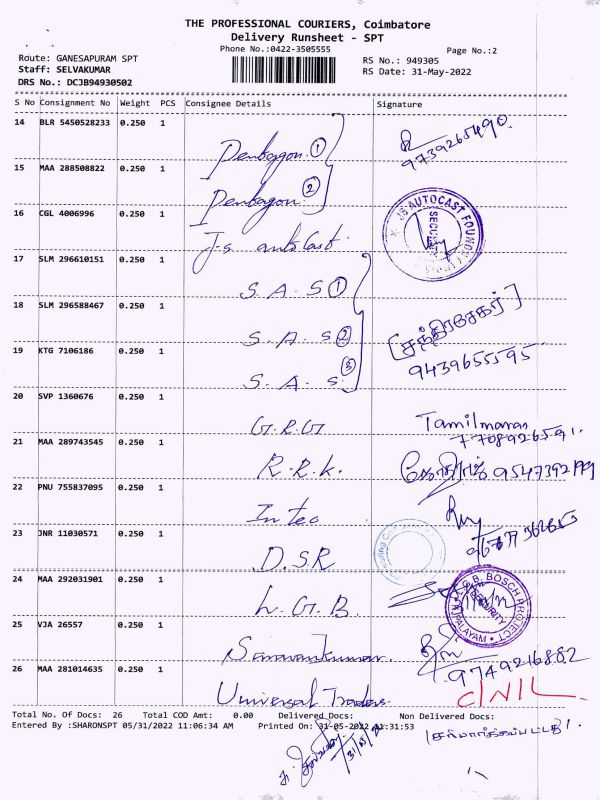 THE PROFESSIONAL COURIERS, Coimbatore
Delivery Runsheet - SPT
Phone No.:0422-3505555
Page No.:2
Route: GANESAPURAM SPT
RS No.: 949305
Staff: SELVAKUMAR
RS Date: 31-May-2022
DRS No.: DCJB94930502
S No Consignment No Weight PCS Consignee Details Signature
14 BLR 5450528233 0.250 1 Pentagon ① 9739265490
15 MAA 288508822 0.250 1 Pentagon ②
16 CGL 4006996 0.250 1 J-s autocast JS AUTOCAST SECURITY
17 SLM 296610151 0.250 1 S. A. S ①
18 SLM 296588467 0.250 1 S. A. S ② [சந்திரசேகர்]
19 KTG 7106186 0.250 1 S. A. S. ③ 9439655595
20 SVP 1360676 0.250 1 G.R.G Tamilmaran
7708926591.
21 MAA 289743545 0.250 1 R.R.K. 9547392199
22 PNU 755837095 0.250 1 Intec
23 JNR 11030571 0.250 1 D.S.R
24 MAA 292031901 0.250 1 L.G.B. L.G.B. BOSCH PROJECT SECURITY
25 VJA 26557 0.250 1 Saravankumar. 9749216882
26 MAA 281014635 0.250 1 Universal Traders. C/N/L
Total No. of Docs: 26 Total COD Amt: 0.00 Delivered Docs: Non Delivered Docs:
Entered By :SHARONSPT 05/31/2022 11:06:34 AM Printed On: 31-05-2022 11:31:53